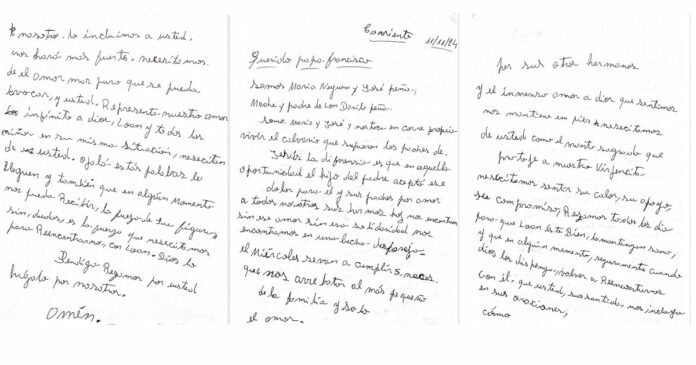 Corriente
11/11/24
Querido papa francisco
Somos María Noguera y José peña,
Madre y padre de Loan Danilo peña.
Somo María y José y nos toca en carne propia
vivir el calvario que sufrieron los padres de
Jesús la diferencia es que en aquella
oportunidad el hijo del padre acepto ese
dolor para el y sus padres por amor
a todos nosotros sus hermos hoy nos encontramos
sin ese amor sin esa solidaridad nos
encontramos en una lucha
el Miércoles seran a cumplir 5, meces.
que nos arrebatan al más pequeño
de la familia y solo
el amor.
por sus otro hermanos
y el inmenso amor a dios que sentimos
nos mantiene en pies y nesecitamos
de usted como el manto sagrado que
protoje a nuestro Virjencito
nesecitamos sentir su calor, su apoyo,
su compromiso, Rezamos todos los dia
para que Loan este Bien, lo mantengan sano,
y que en algún momento, seguramente cuando
dios los disponga, volver a Reencontrarnos
con él. que usted, su santidad, nos incluya
en sus oraciones,
cómo
nosotro. lo incluimos a usted.
nos hará mas fuerte. necesitamos
de el amor mas puro que se pueda
brocar, y usted. Represento nuestro amor
infinito a dios, Loan y todos los
niños en su misma situación, nesecitan
de usted. ojalá estás palabras le
lleguen y también que en algún Momento
nos pueda Recibir, la fuerza de su figura,
sin, dudas, es la fuerza que nesecitamos
para Reencontrarnos, con Loan. Dios lo
Bendiga Rezamos por usted
hágalo por nosotros.
Amén.